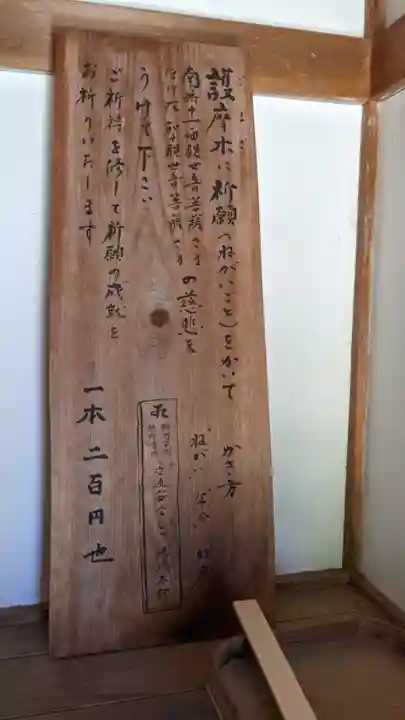 ごまぎ
護摩木に祈願(ねがいごと)をかいて
南無十一面観世音菩薩さま
千手観世音菩薩さま
の慈悲を
うけて下さい
ご祈祷を修して祈願の成就を
お祈りいたします
かき方
ねがい 年令
一本二百円也